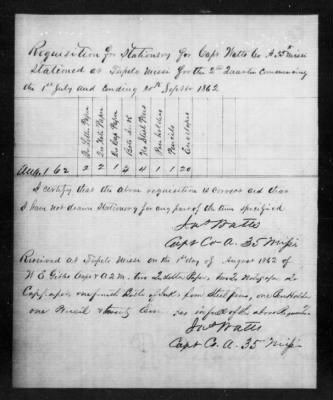 Requisition for Stationery for Capt Watts Co. A 35th Missi
Stationed at Tupelo Missi for the 2nd Quarter Commencing
the 1st July and Ending 30th Septbr 1862
Qr Letter Paper
Qr Note Paper
Qr Cap Paper
Botts Ink
No Steel Pens
Pen holders
Pencils
Envelopes
Augst 1 62 2 2 1 4 4 1 1 20
I certify that the above requisition is correct and that
I have not drawn Stationery for any part of the time specified
Jno Watts
Capt Co A. 35 Missi
Received at Tupelo Miss on the 1st day of August 1862 of
W E Gibbs Capt & A.Q.M. two Qr letter Paper two Qr Note paper Qr
Cap paper one Bottle of Ink four Steel pens, one Pen Holder
one Pencil & twenty in full of the above Requisition
Jno Watts
Capt Co. A. 35 Missi